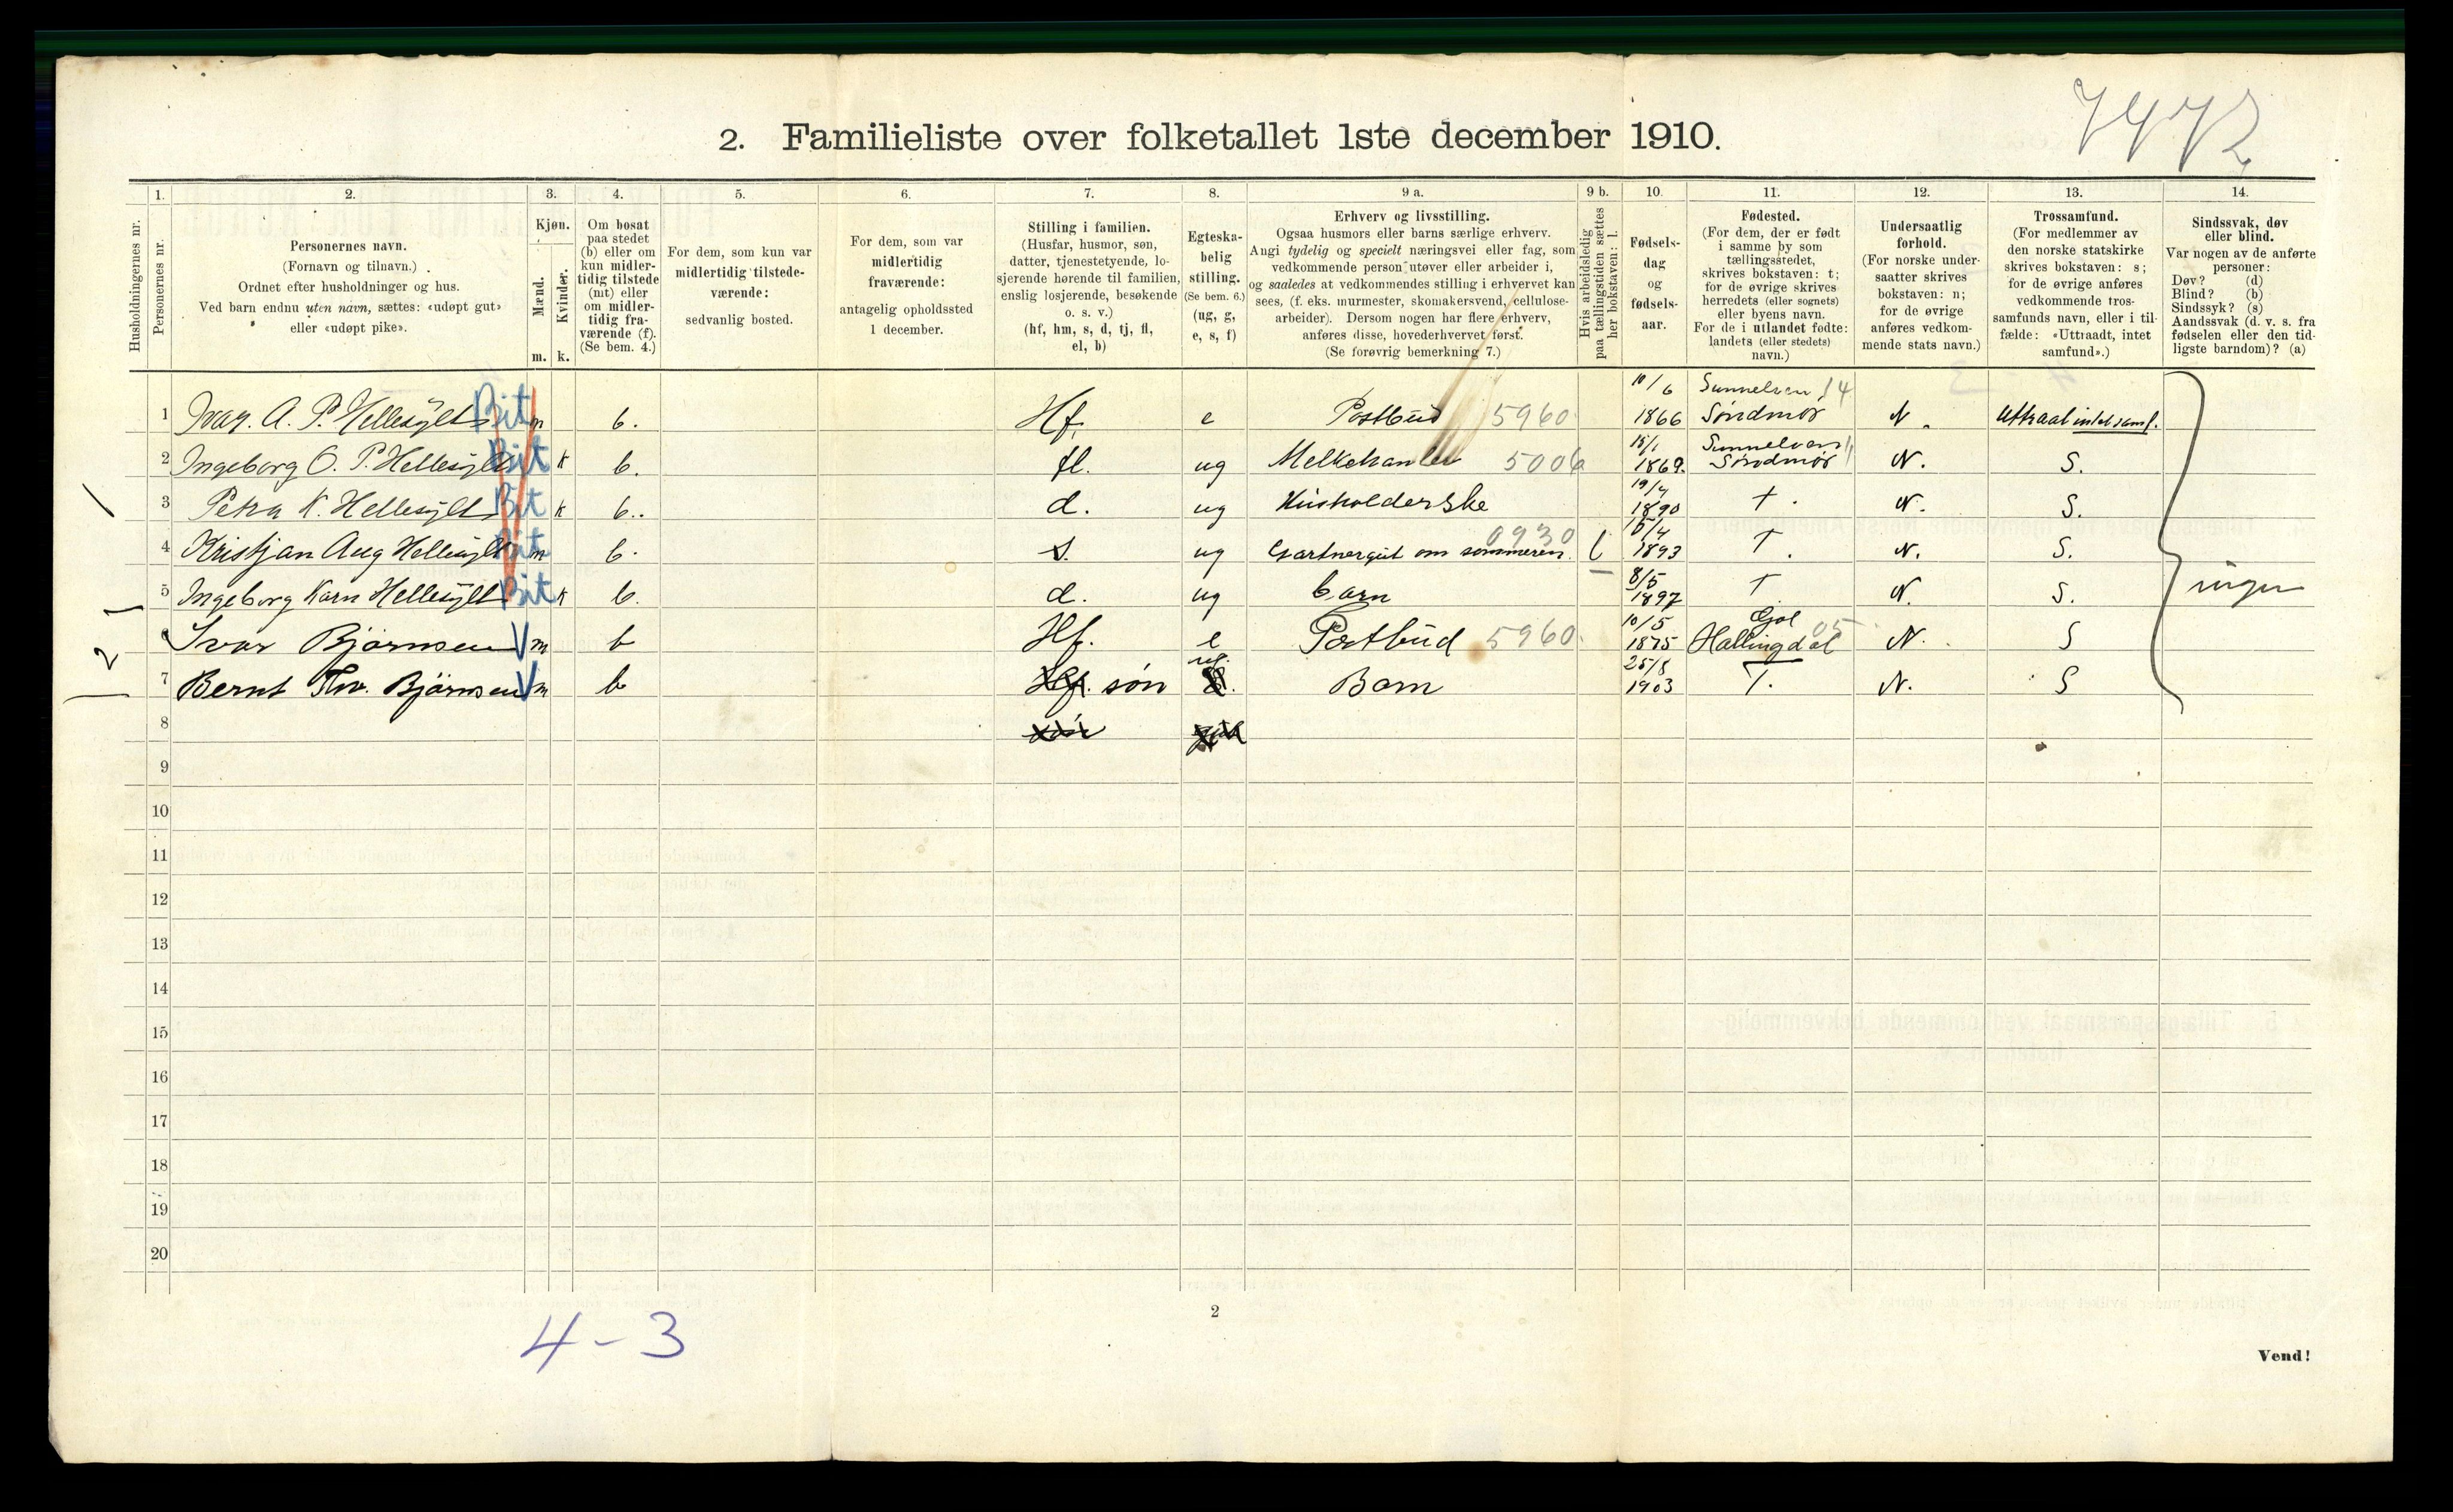 7472
2. Familieliste over folketallet 1ste december 1910.
1. 2. 3. 4. 5. 6. 7. 8. 9 a. 9 b. 10. 11. 12. 13. 14.
Husholdningernes nr.
Personernes nr.
Personernes navn.
(Fornavn og tilnavn.)
Ordnet efter husholdninger og hus.
Ved barn endnu uten navn, sættes: «udøpt gut»
eller «udøpt pike».
Kjøn.
Mænd.
Kvinder.
m. k.
Om bosat
paa stedet
(b) eller om
kun midler-
tidig tilstede
(mt) eller
om midler-
tidig fra-
værende (f).
(Se bem. 4.)
For dem, som kun var
midlertidig tilstede-
værende:
sedvanlig bosted.
For dem, som var
midlertidig
fraværende:
antagelig opholdssted
1 december.
Stilling i familien.
(Husfar, husmor, søn,
datter, tjenestetyende, lo-
sjerende hørende til familien,
enslig losjerende, besøkende
o. s. v.)
(hf, hm, s, d, tj, fl,
el, b)
Egteska-
belig
stilling.
(Se bem. 6.)
(ug, g,
e, s, f)
Erhverv og livsstilling.
Ogsaa husmors eller barns særlige erhverv.
Angi tydelig og specielt næringsvei eller fag, som
vedkommende person utøver eller arbeider i,
og saaledes at vedkommendes stilling i erhvervet kan
sees, (f. eks. murmester, skomakersvend, cellulose-
arbeider). Dersom nogen har flere erhverv,
anføres disse, hovederhvervet først.
(Se forøvrig bemerkning 7.)
Hvis arbeidsledig
paa tællingstiden sættes
her bokstaven: l.
Fødsels-
dag
og
fødsels-
aar.
Fødested.
(For dem, der er født
i samme by som
tællingsstedet,
skrives bokstaven: t;
for de øvrige skrives
herredets (eller sognets)
eller byens navn.
For de i utlandet fødte:
landets (eller stedets)
navn.)
Undersaatlig
forhold.
(For norske under-
saatter skrives
bokstaven: n;
for de øvrige
anføres vedkom-
mende stats navn.)
Trossamfund.
(For medlemmer av
den norske statskirke
skrives bokstaven: s;
for de øvrige anføres
vedkommende tros-
samfunds navn, eller i til-
fælde: «Uttraadt, intet
samfund».)
Sindssvak, døv
eller blind.
Var nogen av de anførte
personer:
Døv? (d)
Blind? (b)
Sindssyk? (s)
Aandssvak (d. v. s. fra
fødselen eller den tid-
ligste barndom)? (a)
1 Ivar. A. P. Hellesylt Bit m b. Hf. e Postbud 5960 10/6 1866 Sunnelven 14 Søndmør N. Uttraat intet samf.
2 Ingeborg O. P. Hellesylt Bit k b. fl. ug Melkehandler 5006 15/1 1869. Sunnelven Søndmør N. S.
3 Petra K. Hellesylt Bit k b. d. ug Husholderske 19/4 1890 t. N. S.
4 Kristjan Aug Hellesylt Bit m b. s. ug Gartnergut om sommeren. 0930 l 15/4 1893 T. N. S.
5 Ingeborg Karn Hellesylt Bit k b. d. ug barn 8/5 1897 T. N. S. ingen
6 Ivar Bjørnsen V m b Hf. e Postbud 5960. 10/5 1875 Gol 05 Hallingdal N. S
7 Bernt Thv. Bjørnsen V m b søn ug. Barn 25/8 1903 T. N. S
8
9
10
11
12
13
14
15
16
17
18
19
20
4-3
2
Vend!